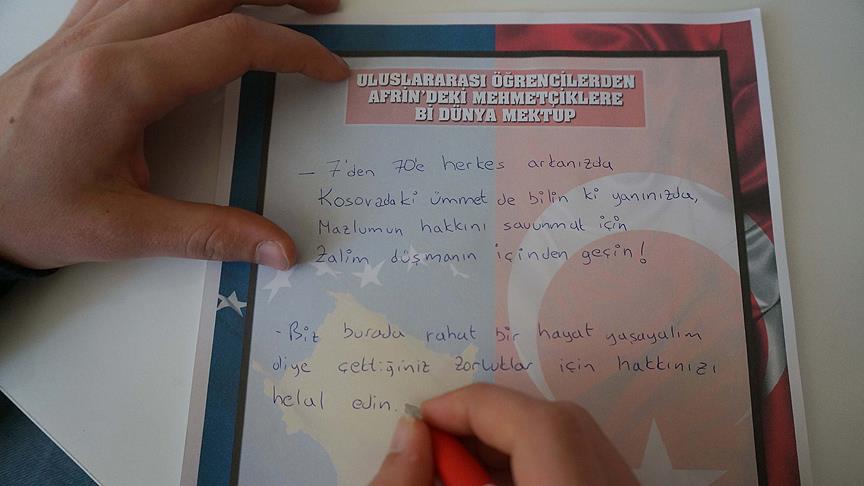 ULUSLARARASI ÖĞRENCİLERDEN
AFRİN'DEKİ MEHMETÇİKLERE
Bİ DÜNYA MEKTUP
- 7'den 70'e herkes arkanızda
Kosovadaki ümmet de bilin ki yanınızda,
Mazlumun hakkını savunmak için
Zalim düşmanın içinden geçin!
- Biz burada rahat bir hayat yaşayalım
diye çettiğiniz zorluklar için hakkınızı
helal edin.